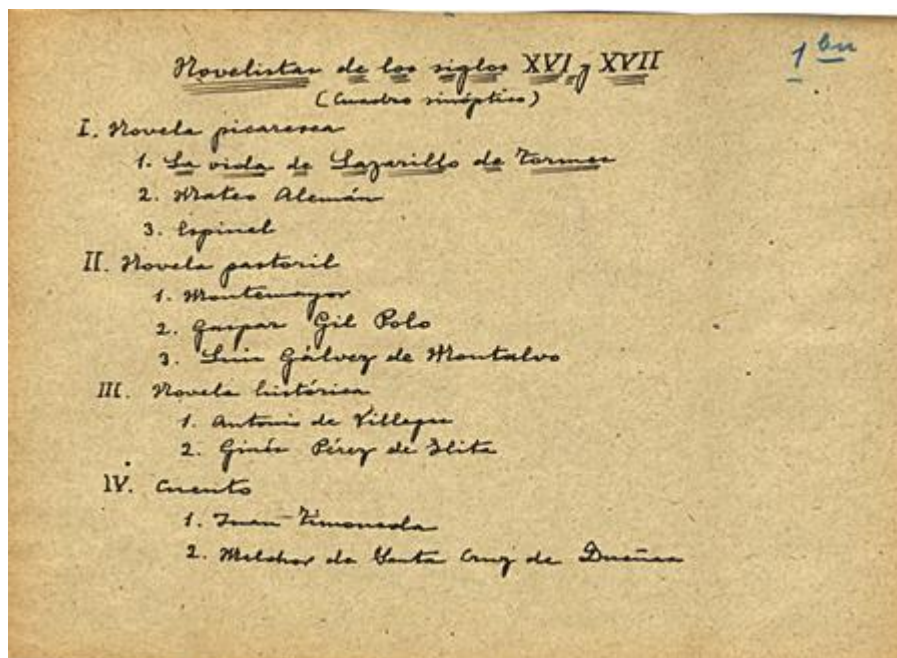 Novelistas de los siglos XVI y XVII
(Cuadro sinóptico)
I. Novela picaresca
1. La vida de Lazarillo de Tormes
2. Mateo Alemán
3. Espinel
II. Novela pastoril
1. Montemayor
2. Gaspar Gil Polo
3. Luis Gálvez de Montalvo
III. Novela histórica
1. Antonio de Villegas
2. Ginés Pérez de Hita
IV. Cuento
1. Juan Timoneda
2. Melchor de Santa Cruz de Dueñas